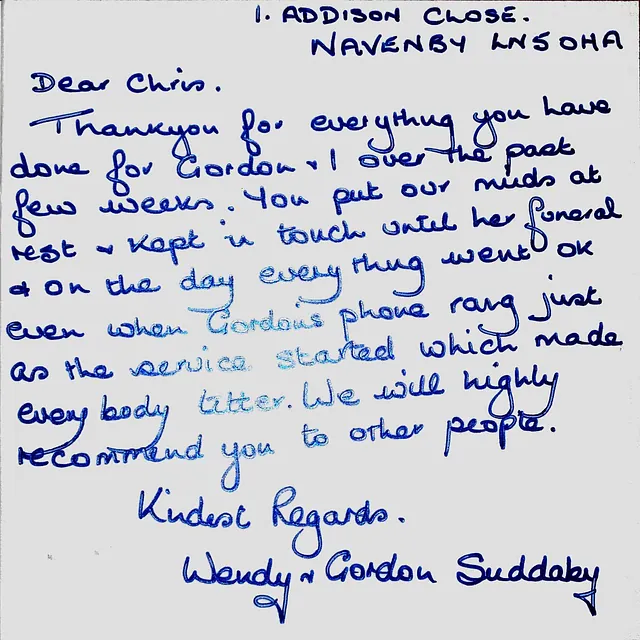 1. ADDISON CLOSE.
NAVENBY LN5 0HA
Dear Chris.
Thankyou for everything you have
done for Gordon & I over the past
few weeks. You put our minds at
rest & kept in touch until her funeral
& on the day everything went ok
even when Gordons phone rang just
as the service started which made
every body titter. We will highly
recommend you to other people.
Kindest Regards.
Wendy & Gordon Suddaby